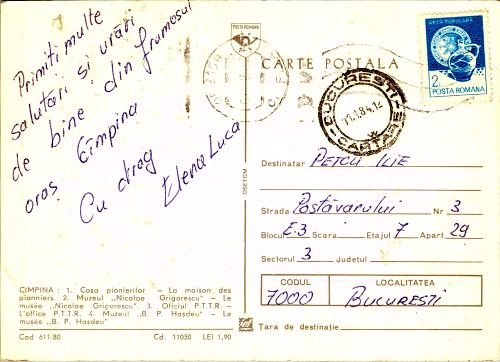 Primiti multe
salutări și urări
de bine din frumosul
oraș Cîmpina
Cu drag
Elena Luca
CIMPINA : 1. Casa pionierilor — La maison des
pionniers. 2. Muzeul „Nicolae Grigorescu" — Le
musée „Nicolae Grigorescu". 3. Oficiul P.T.T.R. —
L'office P.T.T.R. 4. Muzeul „B. P. Hașdeu" — Le
musée „B. P. Hașdeu"
Cod 611/80 Cd. 11050 LEI 1,90
OSETOM
POSTA ROMANA
CARTE POSTALA
BUCUREȘTI
CARTARE
ARTA POPULARA
2
POSTA ROMANA
Destinatar PETCU ILIE
Strada Postăvarului Nr 3
Blocul E.3 Scara Etajul 7 Apart 29
Sectorul 3 Județul
CODUL LOCALITATEA
7000 BUCUREȘTI
Țara de destinație